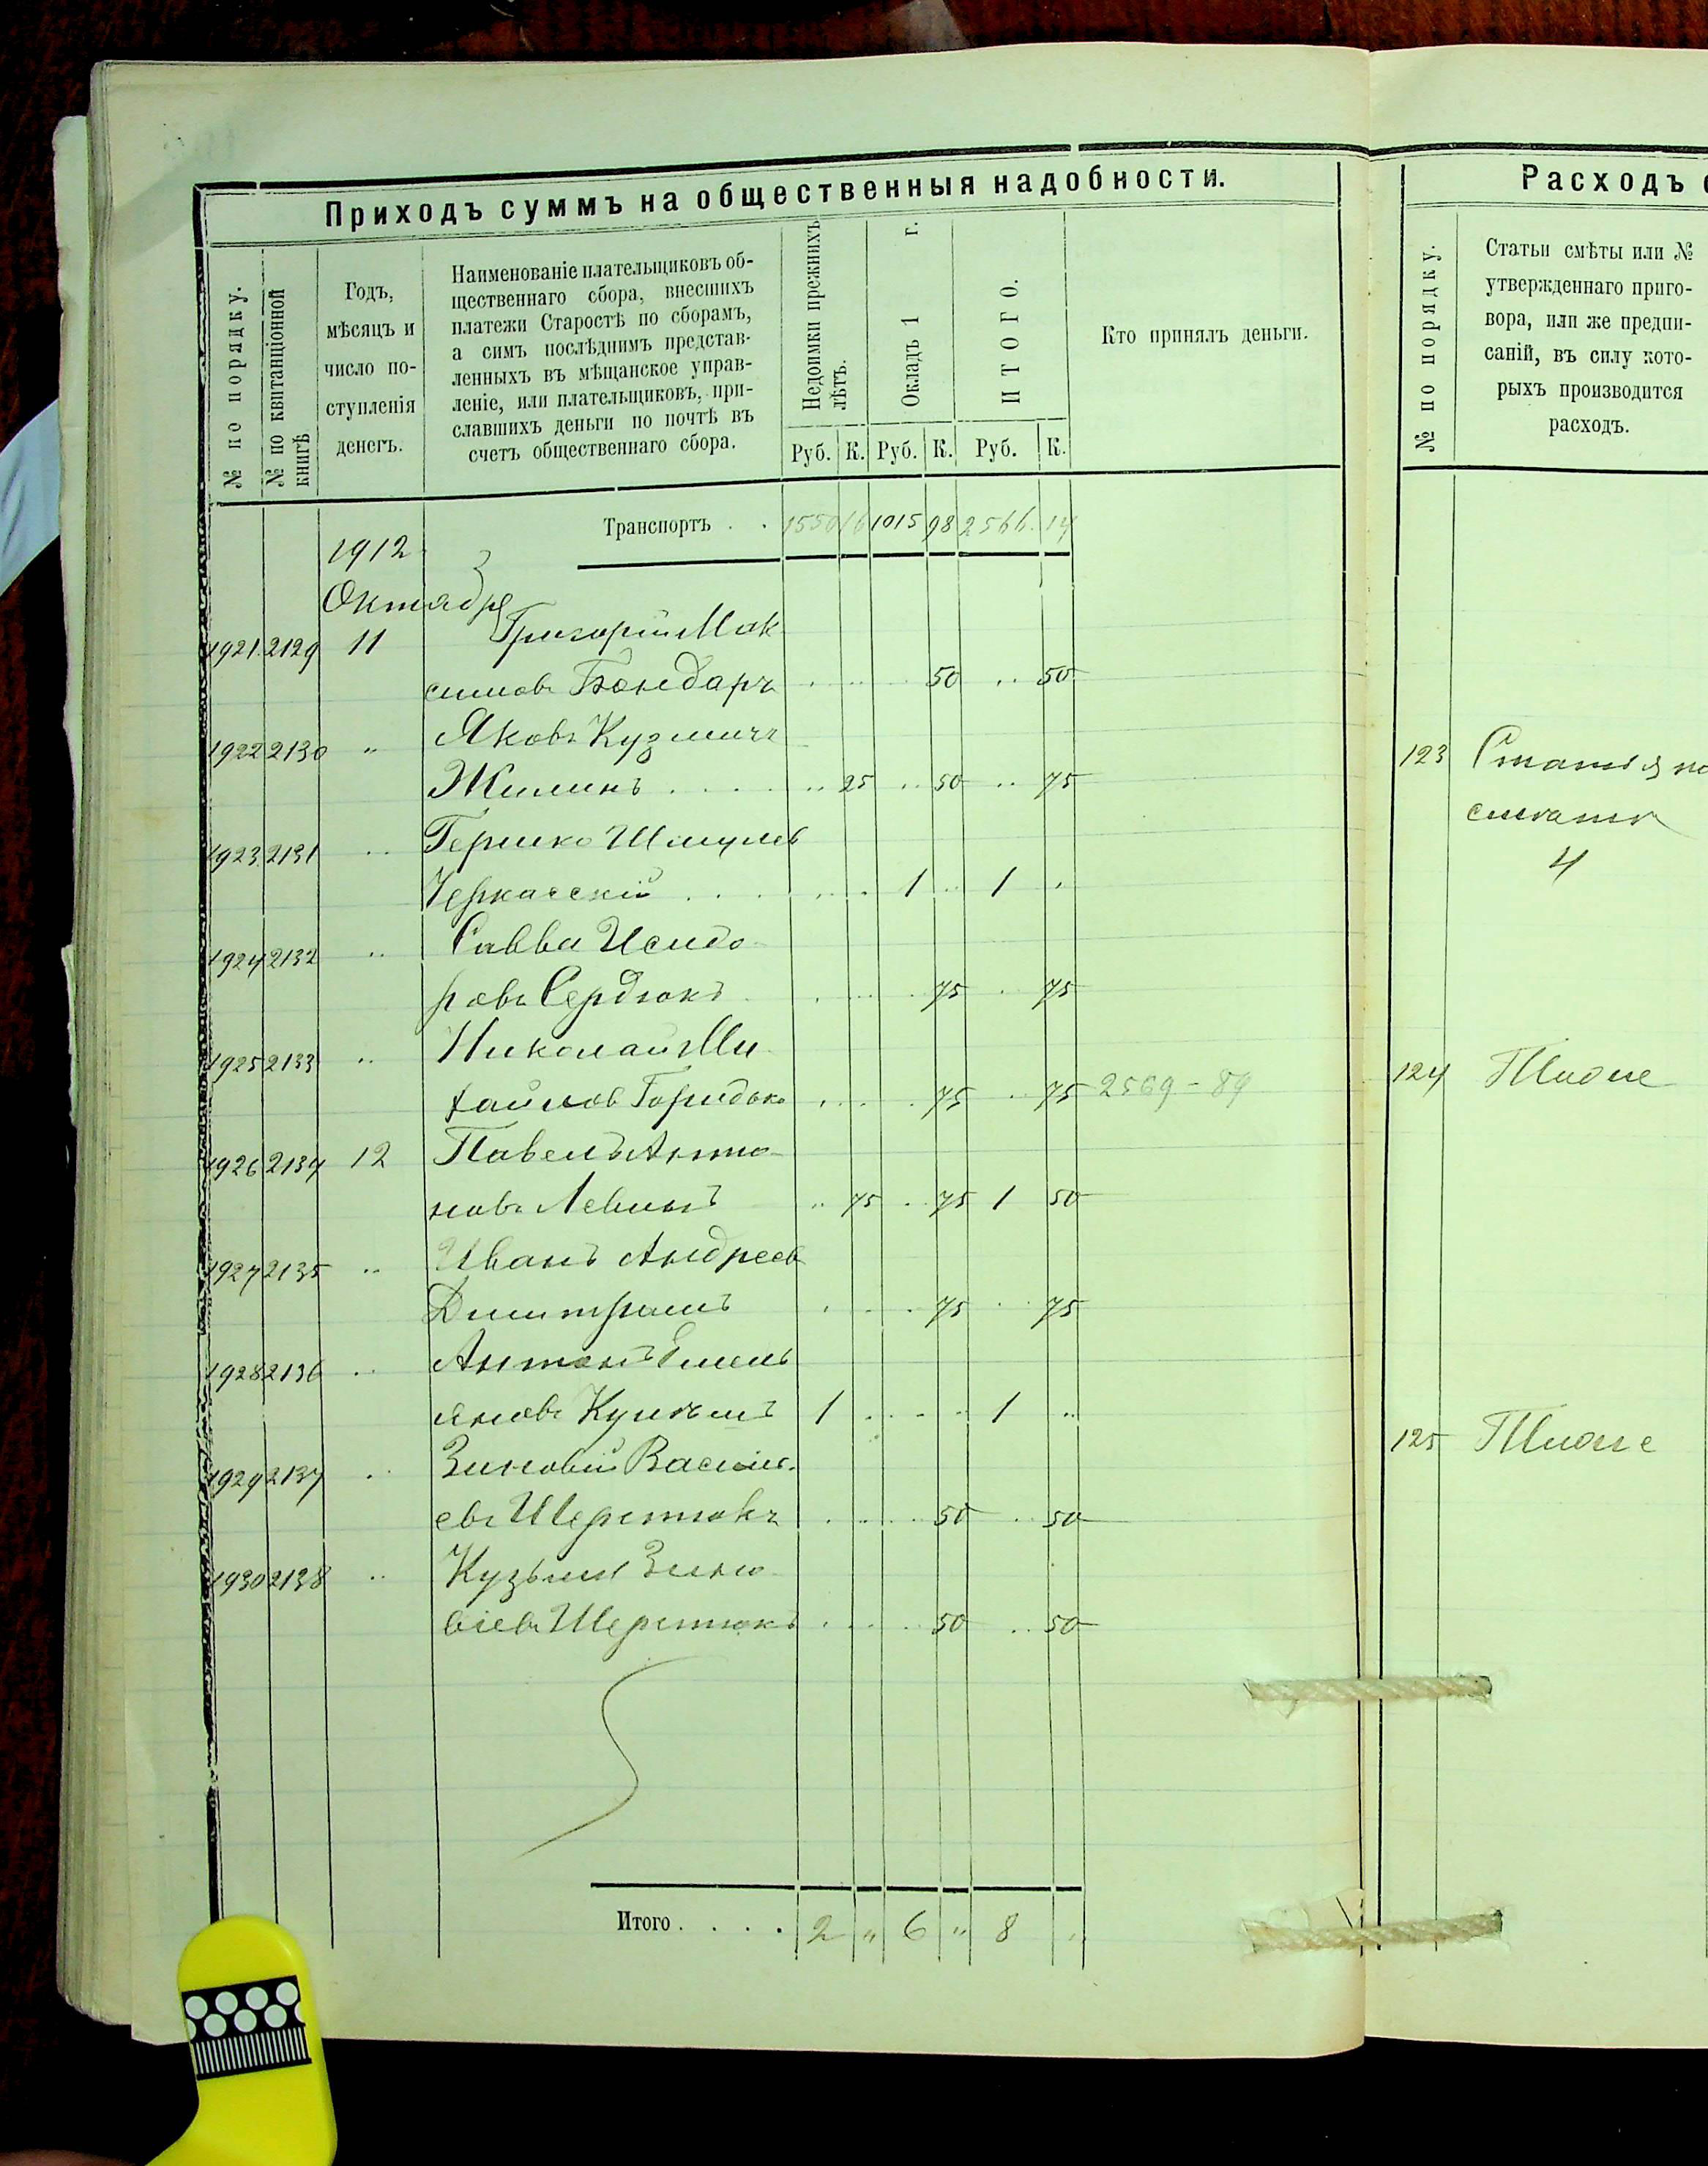 Приходъ суммъ на общественныя надобности.
№ по порядку.
№ по квитанціонной книгѣ
Годъ,
мѣсяцъ и
число по-
ступленія
денегъ.
Наименованіе плательщиковъ об-
щественнаго сбора, внесшихъ
платежи Старостѣ по сборамъ,
а симъ послѣднимъ представ-
ленныхъ въ мѣщанское управ-
леніе, или плательщиковъ, при-
славшихъ деньги по почтѣ въ
счетъ общественнаго сбора.
Недоимки прежнихъ лѣтъ.
Окладъ 1 г.
ИТОГО.
Кто принялъ деньги.
Руб. К. Руб. К. Руб. К.
Транспортъ . . 1550 16 1015 98 2566 14
1912
Октября
1921 2129 11 Григорій Мак
симовъ Бондарь 50 50
1922 2130 " Яковъ Кузмичъ
Жилинъ 25 50 75
1923 2131 " Гершко Шмулев
Черкасскій 1 1
1924 2132 " Савва Исидо
ровъ Сердюкъ 75 75
1925 2133 " Николай Ми
хайлов 75 75 2569-89
1926 2134 12 Павелъ Анто
новъ Левинъ 75 75 1 50
1927 2135 " Иванъ Андреев
75 75
1928 2136 " Антонъ Емель
яновъ 1 1
1929 2137 " Зиновій Василь
евъ Шереметокъ 50 50
1930 2138 " Кузьма Зино
віевъ Шереметокъ 50 50
Итого . . . . 2 " 6 " 8
Расходъ с
№ по порядку.
Статьи смѣты или №
утвержденнаго приго-
вора, или же предпи-
саній, въ силу кото-
рыхъ производится
расходъ.
123 Статья по
смѣтѣ
4
124 Тноже
125 Тноже